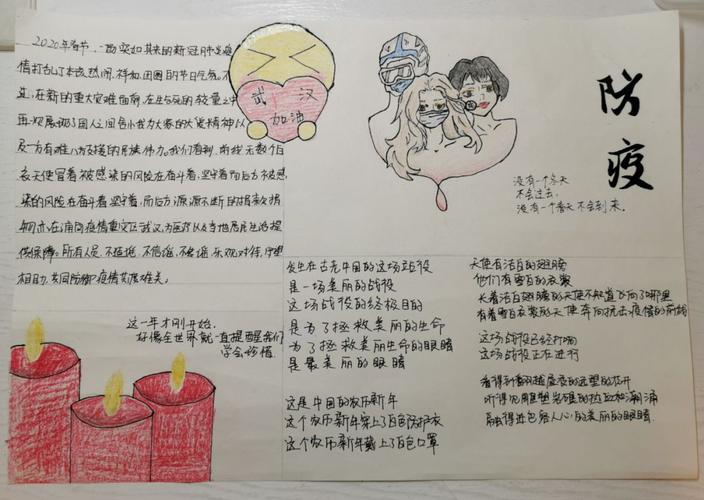 2020年春节,一场突如其来的新冠肺炎疫
情打乱了本该热闹、祥和、团圆的节日气氛。不
过,在新的重大灾难面前,在生与死的较量之中
再次展现了国人三间舍小我为大家的大爱精神以
及一方有难八方支援的民族伟力。我们看到,前线无数白
衣天使冒着被感染的风险在奋斗着,坚守着即后方不被感
染的风险在奋斗着,坚守着,而后方源源不断的捐款捐
物,亦在涌向疫情重灾区武汉,为医疗以及当地居民生活提
供保障。所有人员,不造谣、不信谣、不传谣、乐观对待,守望
相助,共同防御疫情共度难关。
武汉
加油
防疫
没有一个冬天
不会过去,
没有一个春天不会到来。
这一年才刚开始,
好像全世界就一直提醒我们
学会珍惜
发生在古老中国的这场战役
是一场美丽的战役
这场战役的终极目的
是为了拯救美丽的生命
为了拯救美丽生命的眼睛
是最美丽的眼睛
这是中国的农历新年
这个农历新年穿上了白色防护衣
这个农历新年戴上了白色口罩
天使有洁白的翅膀
他们有雪白的衣裳
长着洁白翅膀的天使不知道飞向了哪里
有着雪白衣裳的天使奔向抗击疫情的前线
这场战役已经打响
这场战役正在进行
看得和翻越崖岸的远望的花开
听得见用雕塑岩礁的热血和汹涌
融得进包容人心的美丽的眼睛